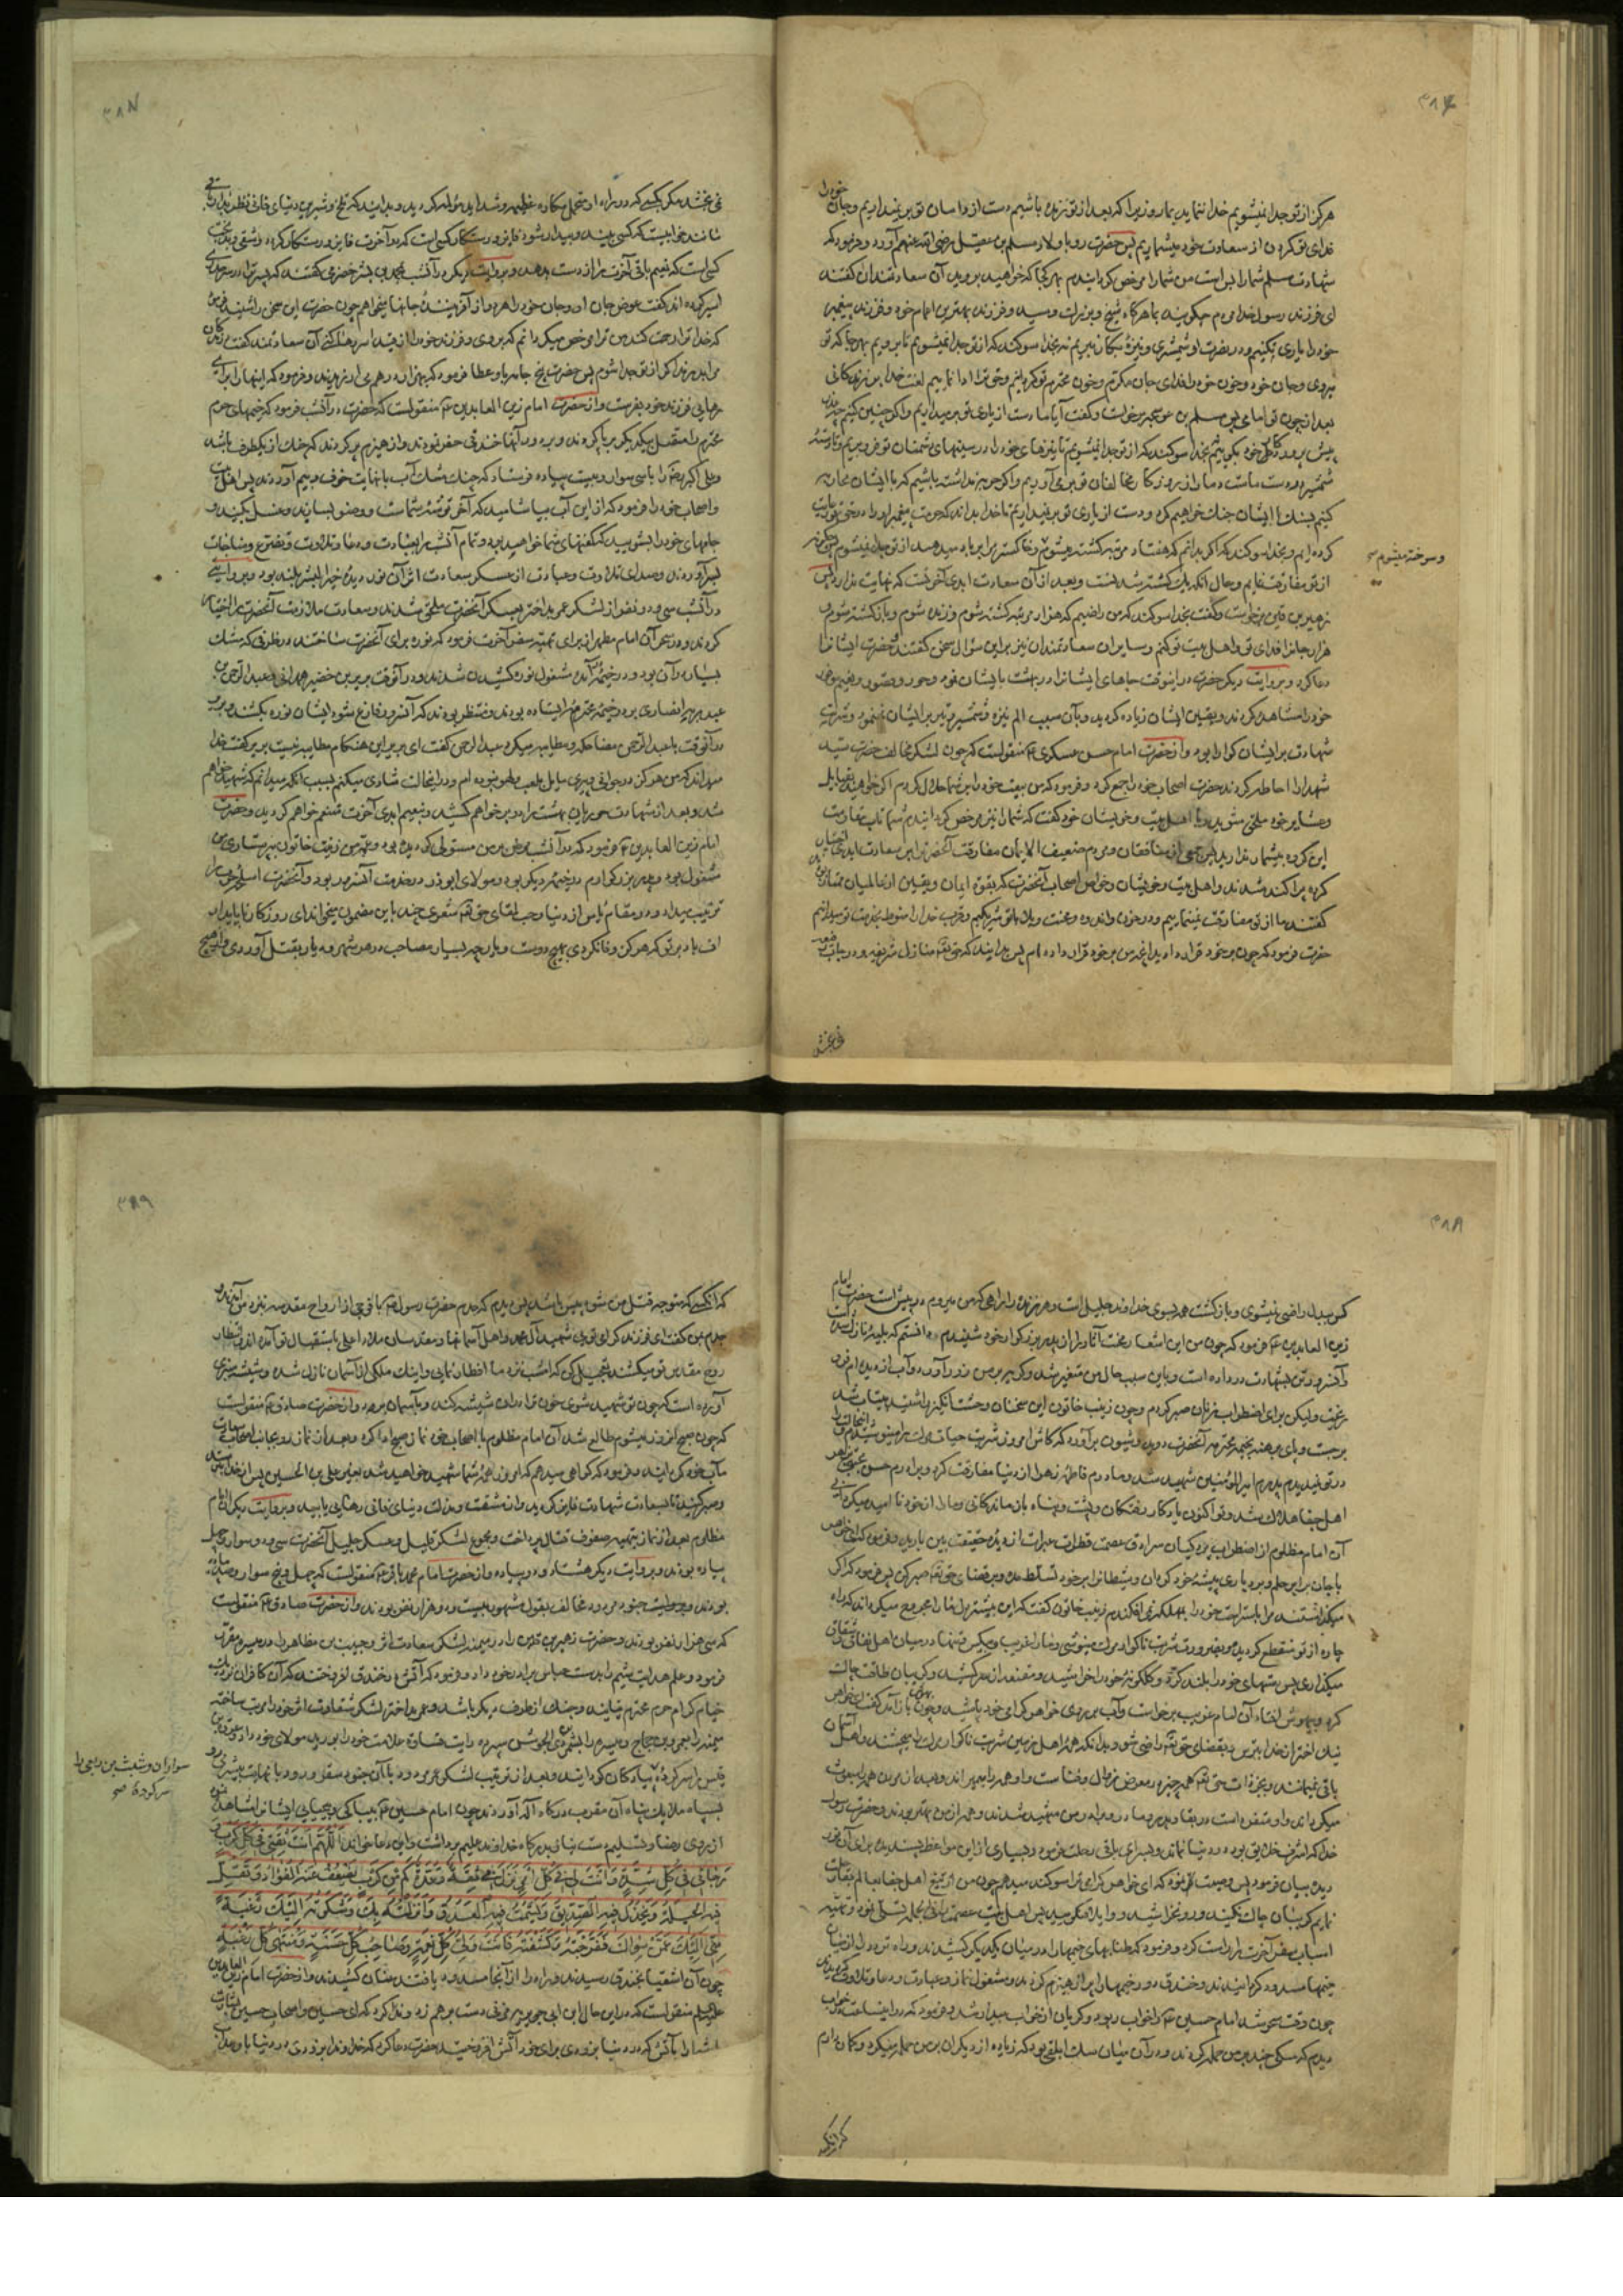 ۳۸۶
هرگز از تو جدا نمیشویم خدا ننماید بما روزیرا که بعد از تو زنده باشیم دست از دامان تو برنمیداریم و جان خود را
فدای تو کردن از سعادت خود میشماریم پس حضرت رو باولاد مسلم بن عقیل رضی الله عنهم آورد و فرمود که
شهادت مسلم شما را بس است من شما را مرخص گردانیدم بهر کجا که خواهید بروید آن سعادتمندان گفتند
ای فرزند رسول خدا مردم چه گویند بما هرگاه شیخ و بزرگ و سید و فرزند بهترین اعمام خود و فرزند پیغمبر
خود را یاری نکنیم و در نصرت او شمشیری و نیزهٔ بکار نبریم نه بخدا سوگند که از تو جدا نمیشویم تا برویم بهر جا که تو
بروی و جان خود و خون خود را فدای جان مکرم و خون محترم تو گردانیم و حق ترا ادا نماییم لعنت خدا بر زندگانی
بعد از چون تو امامی پس مسلم بن عوسجه برخاست و گفت آیا ما دست از یاری تو برمیداریم و اگر چنین کنیم چه عذر
پیش پروردگار خود بگوییم بخدا سوگند که از تو جدا نمیشویم تا نیزهای خود را در سینهای دشمنان تو فرو بریم و تا دستهٔ
شمشیر در دست ماست دمار از روزگار مخالفان تو بر می‌آوریم و اگر حربه نداشته باشیم که با ایشان محاربه
کنیم بسنگ با ایشان جنگ خواهیم کرد و دست از یاری تو برنمیداریم تا خدا بداند که حرمت پیغمبر او را در حق تو رعایت
کرده‌ایم و بخدا سوگند که اگر بدانم که هفتاد مرتبه کشته میشوم و خاکستر مرا بر باد میدهند از تو جدا نمیشوم پس چگونه
و سوخته میشوم صح
از تو مفارقت نمایم و حال آنکه یک کشته شدنست و بعد از آن سعادت ابدی آخرتست که نهایت ندارد پس
زهیر بن قین برخاست و گفت بخدا سوگند که من راضیم که هزار مرتبه کشته شوم و زنده شوم و باز کشته شوم و
هزار جانرا فدای تو و اهل بیت تو کنم و سایر آن سعادتمندان نیز بر این منوال سخن گفتند و حضرت ایشانرا
دعا کرد و بروایت دیگر حضرت در اینوقت جاهای ایشانرا در بهشت بایشان نمود و حور و قصور و نعیم موفور
خود را مشاهده کردند و یقین ایشان زیاده گردید و بآن سبب الم نیزه و شمشیر و تیر بر ایشان نمینمود و شربت
شهادت بر ایشان گوارا بود و از حضرت امام حسن عسکری ع منقولست که چون لشکر مخالف حضرت سید
شهدا را احاطه کردند حضرت اصحاب خود را جمع کرد و فرمود که من بیعت خود را بر شما حلال کردم اگر خواهید بقبایل
و عشایر خود ملحق شوید و با اهل بیت و خویشان خود گفت که شما را نیز مرخص گردانیدم شما تاب مقاومت
این گروه بیشمار ندارید پس جمعی از منافقان و مردم ضعیف الایمان مفارقت آنحضرت را بر سعادت ابدی اختیار
کرده پراکنده شدند و اهل بیت و خویشان و خواص اصحاب آنحضرت که بقوة ایمان و یقین از عالمیان ممتاز بودند
گفتند ما از تو مفارقت نمینماییم و در حزن و اندوه و محنت و بلا با تو شریکیم و قرب خدا را منوط بخدمت تو میدانیم
حضرت فرمود که چون بر خود قرار دادید آنچه من بر خود قرار داده‌ام پس بدانید که حق تعالی منازل شریفه و درجات رفیعه
نمی بخشد
۳۸۷
نمی بخشد مگر بکسی که در راه او متحمل مکاره عظیمه و شداید مؤلمه گردید و بدانید که تلخ و شیرین دنیای فانی نظر بدار باقی
مانند خوابیست که کسی بیند و بیدار شود فایز و رستگار کسی است که در آخرت فایز و رستگار گردد و شقی و بدبخت
کسی است که نعیم باقی آخرت را از دست بدهد و بروایت دیگر در آنشب محمد بن بشر حضرمی گفتند که پسر ترا در سرحد ری
اسیر کرده‌اند گفت عوض جان او و جان خود را هر دو از آفرینندهٔ جانها میخواهم چون حضرت این سخن را شنید فرمود
که خدا ترا رحمت کند من ترا مرخص میگردانم که بروی و فرزند خود را از قید اسر رها کنی آن سعادتمند گفت درندگان
مرا بدرند اگر از تو جدا شوم پس حضرت پنج جامه باو عطا فرمود که بهزار درهم می‌ارزیدند و فرمود که اینها را برای
رهایی فرزند خود بفرست و از حضرت امام زین العابدین ع منقولست که حضرت در آنشب فرمود که خیمهای حرم
محترم را متصل بیکدیگر برپا کردند و بر دور آنها خندقی حفر نمودند و از هیزم پر کردند که جنگ از یکطرف باشد
و علی اکبر را با سی سوار و بیست پیاده فرستاد که چند مشک آب با نهایت خوف و بیم آوردند پس اهل بیت
و اصحاب خود را فرمود که از این آب بیاشامید که آخر توشهٔ شماست و وضو بسازید و غسل بکنید و
جامهای خود را بشویید که کفنهای شما خواهد بود و تمام آنشب را بعبادت و دعا و تلاوت و تضرع و مناجات
بسر آوردند و صدای تلاوت و عبادت از عسکر سعادت اثر آن نور دیدهٔ خیر البشر بلند بود و بروایتی
در آنشب سی و دو نفر از لشکر عمر بد اختر بعسکر آنحضرت ملحق شدند و سعادت ملازمت آنحضرت را اختیار
کردند و در سحر آن امام مطهر از برای تهیهٔ سفر آخرت فرمود که نوره برای آنحضرت ساختند در ظرفی که مشک
بسیار در آن بود و در خیمهٔ آمده مشغول نوره کشیدن شدند و در آنوقت بریر بن خضیر همدانی و عبدالرحمن بن
عبد ربه انصاری بر در خیمهٔ محترم ایستاده بودند و منتظر بودند که آنسرور فارغ شود ایشان نوره بکشند و بریر
در آنوقت با عبدالرحمن مضاحکه و مطایبه میکرد عبدالرحمن گفت ای بریر این هنگام مطایبه نیست بریر گفت خدا
میداند که من هرگز در جوانی و پیری مایل بلعب و لهو نبوده‌ام و در اینحالت شادی میکنم بسبب آنکه میدانم که شهید خواهم
شد و بعد از شهادت حوریان بهشت را در بر خواهم کشید و بنعیم ابدی آخرت متنعم خواهم گردید و حضرت
امام زین العابدین ع فرمود که در آنشب مرض بر من مستولی گردیده بود و عمهٔ من زینب خاتون بپرستاری من
مشغول بود و پدر بزرگوارم در خیمهٔ دیگر بود و مولای ابوذر در خدمت آنسرور بود و آنحضرت اسلحهٔ حرب را
ترتیب میداد و در مقام یأس از دنیا و حب لقای حق تعالی شعری چند باین مضمون میخواند ای روزگار ناپایدار
اف باد بر تو که هرگز وفا نکردی بهیچ دوست و یار چه بسیار مصاحب در هر شهر و دیار بقتل آوردی و بهیچ
۳۸۸
کس بدل راضی نمیشوی و بازگشت همه بسوی خداوند جلیل است و هر زنده را براهی که من میروم در پیش است حضرت امام
زین العابدین ع فرمود که چون من این اشعار محنت آثار را از پدر بزرگوار خود شنیدم دانستم که بلیه نازل شده است و
آنسرور تن بشهادت در داده است و باین سبب حال من متغیر شد و گریه بر من زور آورد و آب از دیده‌ام فرو
نریخت و لیکن برای اضطراب زنان صبر کردم و چون زینب خاتون این سخنان وحشت انگیز را شنید بیتاب شد
برجست و پای برهنه بخیمهٔ محترم آنحضرت دوید و شیون برآورد که کاش امروز شربت حیات مرا مینوشیدم و اینحالت را
در تو نمیدیدم پدرم امیرالمؤمنین شهید شد و مادرم فاطمهٔ زهرا از دنیا مفارقت کرد و برادرم حسن مجتبی بزهر
اهل جفا هلاک شد و تو اکنون یادگار رفتگان و پشت و پناه بازماندگانی و ما را از خود ناامید میگردانی
آن امام مظلوم از اضطراب پردگیان سرادق عصمت قطرات عبرات از دیدهٔ حقیقت بین بارید و فرمود که ای خواهر
با جان برابر حلم و بردباری پیشهٔ خود گردان و شیطانرا بر خود تسلط مده و بر قضای حق تعالی صبر کن پس فرمود که اگر
میگذاشتند مرا باستراحت خود را بمهلکه نمی افکندم زینب خاتون گفت که این بیشتر دل ما را مجروح میگرداند که راه
چاره از تو منقطع گردیده و بضرورت شربت ناگوار مرگ مینوشی و ما را غریب و بیکس و تنها در میان اهل نفاق و شقاق
میگذاری پس دستهای خود را بلند کرد و گلگونهٔ خود را خراشید و مقنعه از سر کشید و گریبان طاقت چاک
کرد و بیهوش افتاد آن امام غریب برخاست و آب بر روی خواهر گرامی خود پاشید و چون بهوش باز آمد گفت ای خواهر
نیک اختر از خدا بترس و بقضای حق تعالی راضی شو و بدانکه همهٔ اهل زمین شربت ناگوار مرگ را میچشند و اهل آسمان
باقی نمیمانند و بجز ذات حق تعالی همه چیز در معرض زوال و فناست و او همه را میمیراند و بعد از مردن همه را مبعوث
میگرداند و او منفرد است در بقا پدر و مادر و برادر من شهید شدند و همه از من بهتر بودند و حضرت رسول
خدا که اشرف خلایق بود در دنیا نماند و بسرای باقی رحلت فرمود و بسیاری از این مواعظ پسندیده برای آن نور
دیده بیان فرمود پس وصیت فرمود که ای خواهر گرامی ترا سوگند میدهم چون من از تیغ اهل جفا بعالم بقا رحلت
نمایم گریبان چاک نکنید و رو نخراشید و واویلا نگویید پس اهل بیت عصمت را فی الجمله تسلی نمود و تهیهٔ
اسباب سفر آخرت را راست کرد و فرمود که طنابهای خیمها را در میان یکدیگر کشیدند و راه تردد را از میان
خیمها مسدود گردانیدند و خندق دور خیمها را پر از هیزم کردند و مشغول نماز و عبادت و دعا و تلاوت گردیدند
چون وقت سحر شد امام حسین ع را خواب ربود و گریان از خواب بیدار شد و فرمود که در این ساعت در خواب
دیدم که سگی چند بر من حمله کردند و در آن میان سگ ابلقی بود که زیاده از دیگران بر من حمله میکرد و گمان دارم
که آنکسی که
۳۸۹
که آنکسی که متوجه قتل من شود پیس باشد پس دیدم که جدم حضرت رسول ص با فوجی از ارواح مقدسه نزد من آمدند و
جدم بمن گفت ای فرزند گرامی تویی شهید آل محمد و اهل آسمانها و مقدسان ملأ اعلی باستقبال تو آمده‌اند و انتظار
روح مقدس تو میکشند تعجیل کن که امشب نزد ما افطار نمایی و اینک ملکی از آسمان نازل شده و شیشهٔ سبزی
آورده است که چون تو شهید شوی خون ترا در آن شیشه کند و بآسمان برد و از حضرت صادق ع منقولست
که چون صبح آنروز میشوم طالع شد آن امام مظلوم با اصحاب خود نماز صبح ادا کرد و بعد از نماز رو بجانب اصحاب سعادت
مآب خود گردانید و فرمود که گواهی میدهم که امروز همهٔ شما شهید خواهید شد بغیر علی بن الحسین پس از خدا بترسید
و صبر کنید تا بسعادت شهادت فایز گردید و از مشقت و مذلت دنیای فانی رهایی یابید و بروایت دیگر آن امام
مظلوم بعد از نماز بتهیهٔ صفوف قتال پرداخت و مجموع لشکر قلیل و عسکر جلیل آنحضرت سی و دو سوار و چهل
پیاده بودند و بروایت دیگر هشتاد و دو پیاده و از حضرت امام محمد باقر ع منقولست که چهل و پنج سوار و صد پیاده
بودند و مجموع جنود مردود مخالف بقول مشهور بیست و دو هزار نفر بودند و از حضرت صادق ع منقولست
که سی هزار نفر بودند و حضرت زهیر بن قین را در میمنهٔ لشکر سعادت اثر و حبیب بن مظاهر را در میسره مقرر
فرمود و علم هدایت شیم را بدست عباس برادر خود داد و فرمود که آتش در خندق افروختند که آن کافران نزدیک
خیام کرام حرم محترم نیایند و جنگ از یکطرف دیگر باشد و عمر بد اختر لشکر شقاوت اثر خود را مرتب ساخته
میمنه را بعمرو بن حجاج و میسره را بشمر ذی الجوشن سپرد و رایت ضلالت علامت خود را بدرید مولای خود داد و عروة بن
سواران و شبث بن ربعی را سرکرده صح
قیس را سرکردهٔ پیادگان گردانید و بعد از ترتیب لشکر عمر مردود با آن جنود سقر ورود با نهایت بیشرمی رو
بسپاه ملایک پناه آن مقرب درگاه آله آوردند چون امام حسین ع بیباکی و بیحیایی ایشانرا مشاهده نمود
از روی رضا و تسلیم دست نیاز بدرگاه خداوند علیم برداشت و این دعا خواند اَللّٰهُمَّ اَنْتَ ثِقَتی فی کُلِّ کَرْبٍ وَ
رَجائی فی کُلِّ شِدَّةٍ وَ اَنْتَ لی فی کُلِّ اَمْرٍ نَزَلَ بی ثِقَةٌ وَ عُدَّةٌ کَمْ مِنْ کَرْبٍ یَضْعُفُ عَنْهُ الْفُؤادُ وَ تَقِلُّ
فیهِ الْحیلَةُ وَ یَخْذُلُ فیهِ الصَّدیقُ وَ یَشْمَتُ فیهِ الْعَدُوُّ اَنْزَلْتُهُ بِکَ وَ شَکَوْتُهُ اِلَیْکَ رَغْبَةً
مِنّی اِلَیْکَ عَمَّنْ سِواکَ فَفَرَّجْتَهُ وَ کَشَفْتَهُ فَاَنْتَ وَلِیُّ کُلِّ نِعْمَةٍ وَ صاحِبُ کُلِّ حَسَنَةٍ وَ مُنْتَهی کُلِّ رَغْبَةٍ
چون آن اشقیا بخندق رسیدند و راه را از آنجا مسدود یافتند عنان کشیدند و از حضرت امام زین العابدین
علیه السلام منقول است که در این حال ابن ابی جویریه مزنی دست بر هم زد و ندا کرد که ای حسین و اصحاب حسین بشارت باد
شما را بآتش که در دنیا بزودی برای خود آتش افروختید حضرت دعا کرد که خداوندا بزودی در دنیا باو عذاب